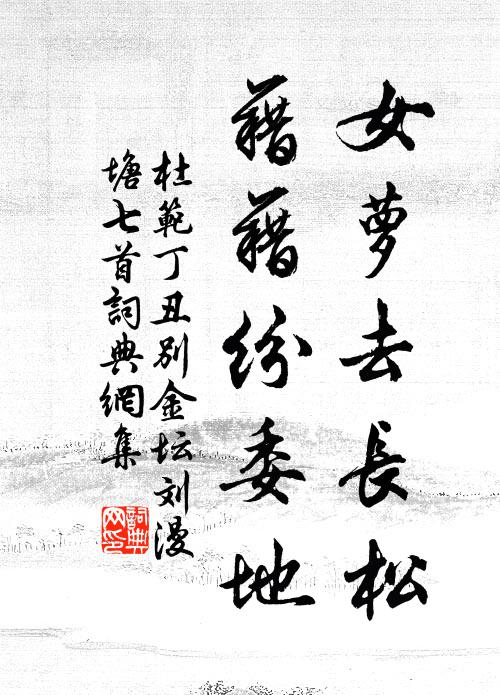 女萝去長松
藉藉纷委地
杜範丁丑别金坛刘漫
塘七首詞典網集
詞典网印